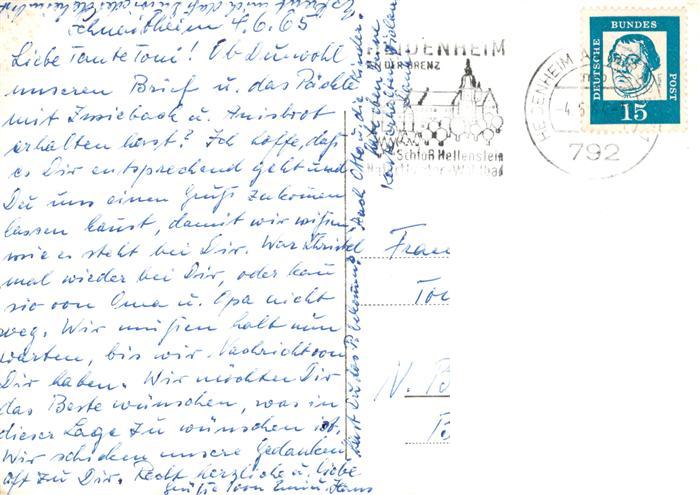 Schnaitheim 4.6.65
Liebe Tante Toni! Ob Du wohl
unseren Brief u. das Päckle
mit Zwieback u. Anisbrot
erhalten hast? Ich hoffe, daß
es Dir entsprechend geht und
Du uns einen Gruß zukomen
lassen kanst, damit wir wißen
wie es steht bei Dir. War Christel
mal wieder bei Dir, oder kan
sie von Oma u. Opa nicht
weg. Wir müßen halt nun
warten, bis wir Nachricht von
Dir haben. Wir möchten Dir
das Beste wünschen, was in
dieser Lage zu wünschen ist.
Wir schicken unsere Gedanken
oft zu Dir. Recht herzliche u. liebe
Grüße von Hans
Hast Du das P. bekomen?
Auch Otto u. die Kinder
habe eben eine
Karte erhalten
HEIDENHEIM
AN DER BRENZ
Schloß Hellenstein
HEIDENHEIM
792
DEUTSCHE BUNDESPOST
15
Frau
N. B